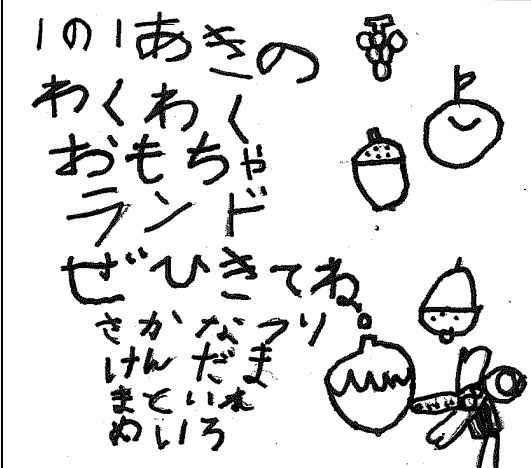 1の1あきの
わくわく
おもちゃ
ランド
ぜひきてね。
さかなつり
けんだま
まといれ
めいろ